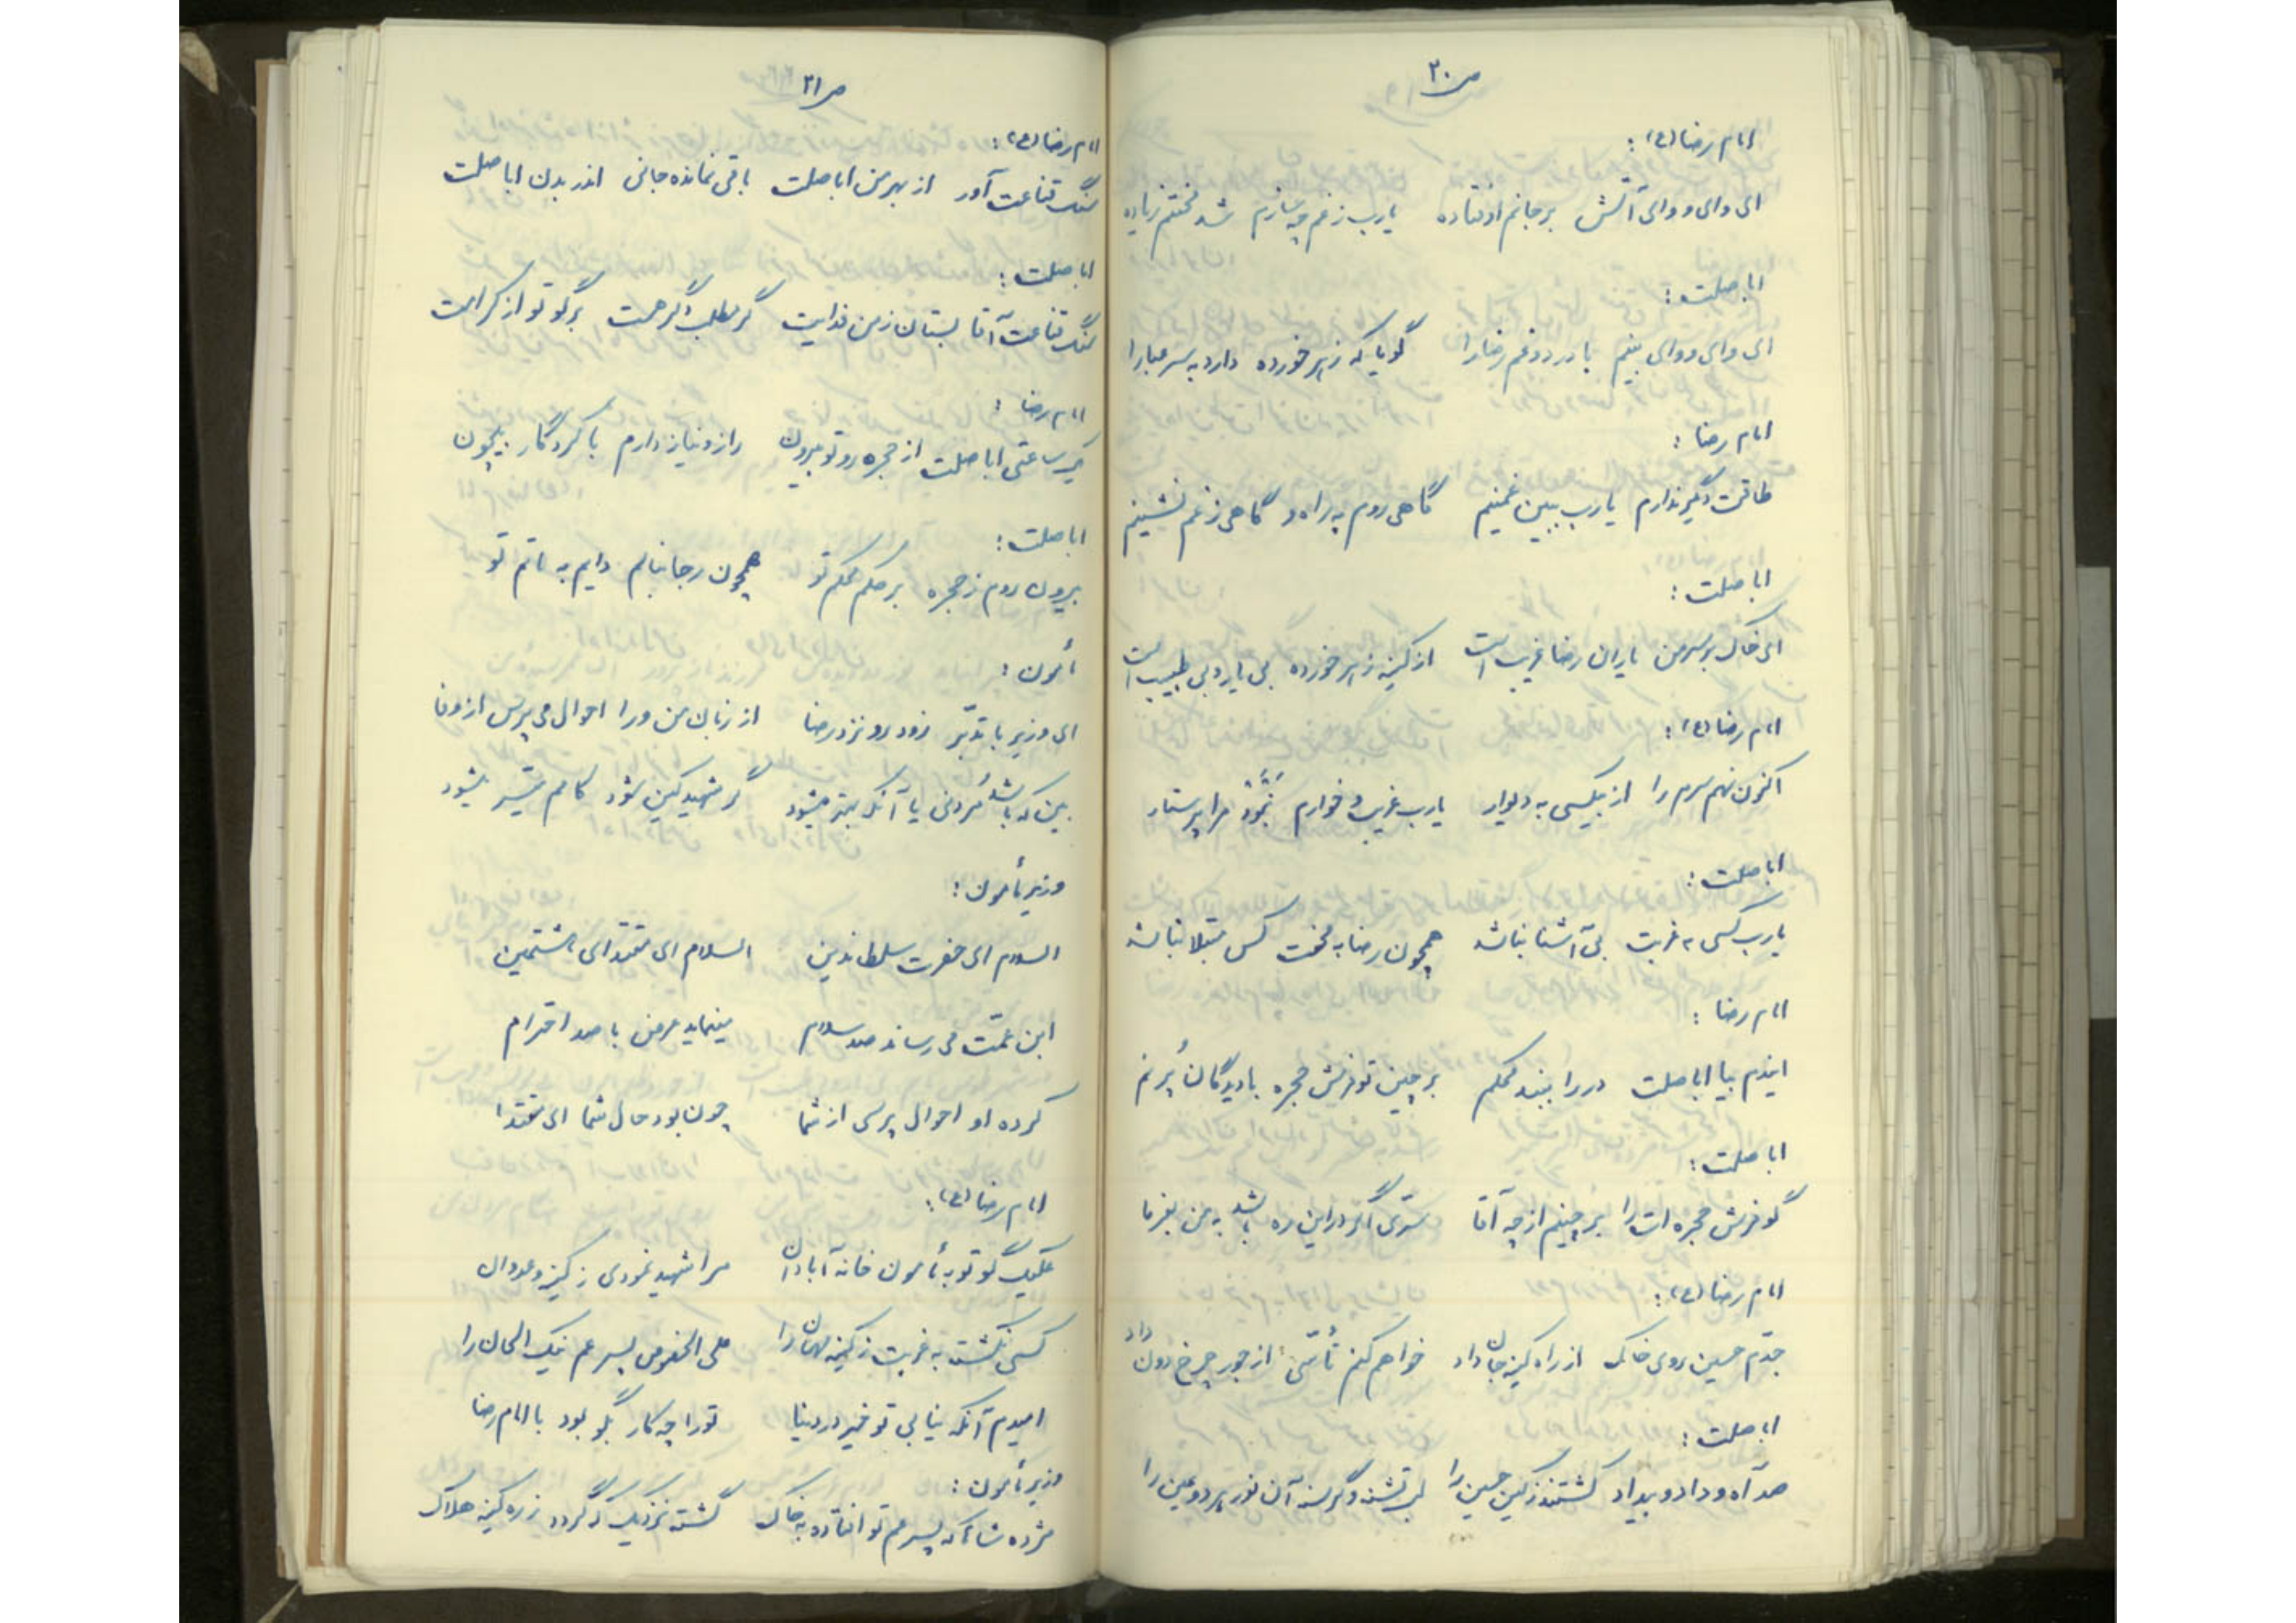 ص ۲۰
امام رضا (ع) :
ای وای و وای آتش بر جانم اوفتاده یارب ز غم چه سازم شد محنتم زیاده
اباصلت :
ای وای و وای بینم با درد و غم رضا را گویا که زهر خورده دارد به سر عبا را
امام رضا :
طاقت دگر ندارم یارب ببین غمینم گاهی روم به راه و گاهی ز غم نشینم
اباصلت :
ای خاک بر سر من یاران رضا غریب است از کینه زهر خورده بی یار و بی طبیب است
امام رضا (ع) :
اکنون نهم سرم را از بیکسی به دیوار یارب غریب و خوارم نَبُوَد مرا پرستار
اباصلت :
یارب کسی به غربت بی آشنا نباشد همچون رضا به محنت کس مبتلا نباشد
امام رضا :
ایندم بیا اباصلت در را ببند محکم برچین تو فرش حجره با دیدگان پُر نم
اباصلت :
گو فرش حجره ات را برچینم از چه آقا سرّی اگر در این ره باشد به من بفرما
امام رضا (ع) :
جدّم حسین روی خاک از راه کینه جان داد خواهم کنم تأسّی از جور چرخ دون داد
اباصلت :
صد آه و داد و بیداد کشتند ز کین حسین را لب تشنه و گرسنه آن نور هر دو عین را
ص ۲۱
امام رضا (ع) :
سنگ قناعت آور از بهر من اباصلت باقی نمانده جانی اندر بدن اباصلت
اباصلت :
سنگ قناعت آقا بستان ز من فدایت گر مطلب دگر هست برگو تو از کرامت
امام رضا :
یک ساعتی اباصلت از حجره رو تو بیرون راز و نیاز دارم با کردگار بیچون
اباصلت :
بیرون روم ز حجره بر حکم محکم تو همچون رجا بنالم دایم به ماتم تو
مأمون :
ای وزیر با تدبّر زود رو نزد رضا از زبان من ورا احوال می پرس از وفا
بین که باشد مُردنی یا آنکه بهتر میشود گر شهید کین شود کامم میسّر میشود
وزیر مأمون :
السلام ای حضرت سلطان دین السلام ای مقتدای هشتمین
ابن عمّت می رساند صد سلام مینماید عرض با صد احترام
کرده او احوال پرسی از شما چون بود حال شما ای مقتدا
امام رضا (ع) :
علیک گو تو به مأمون خانه آبادان مرا شهید نمودی ز کینه و عدوان
کسی نکشته به غربت ز کینه مهمان را علی الخصوص پسر عم نیک الحان را
امیدم آنکه نیابی تو خیر در دنیا تو را چه کار بگو بود با امام رضا
وزیر مأمون :
مژده شاها که پسر عم تو افتاده به خاک گشته نزدیک که گردد ز ره کینه هلاک